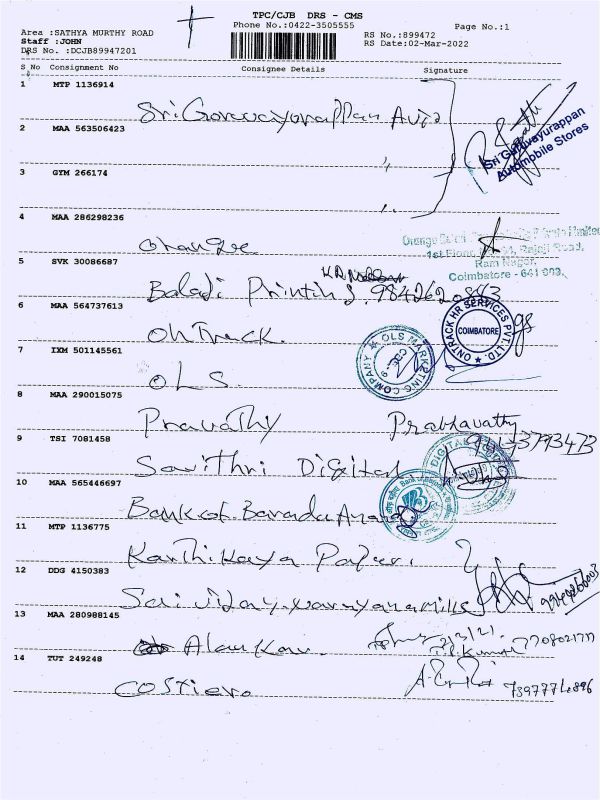 TPC/CJB DRS - CMS
Phone No.:0422-3505555
Page No.:1
Area :SATHYA MURTHY ROAD
RS No.:899472
Staff :JOHN
RS Date:02-Mar-2022
DRS No. :DCJB89947201
S No Consignment No Consignee Details Signature
1 MTP 1136914
Sri Guruvayurappan Auto
2 MAA 563506423
Sri Guruvayurappan
Automobile Stores
3 GYM 266174
4 MAA 286298236
Orange
1st Floor Rajaji Road,
Ram Nagar,
Coimbatore - 641 009.
5 SVK 30086687
Balaji Printing
6 MAA 564737613
OnTrack
ONTRACK HR SERVICES PVT. LTD.
COIMBATORE
7 IXM 501145561
OLS MARKETING COMPANY
OLS
8 MAA 290015075
Pravathy Prabhavathy
9 TSI 7081458
Savithri Digital
DIGITAL
10 MAA 565446697
Bank of Baroda Anand
11 MTP 1136775
Karthikaya Paper
12 DDG 4150383
Sri Vijay
13 MAA 280988145
Alankar
7708021777
14 TUT 249248
Costiero